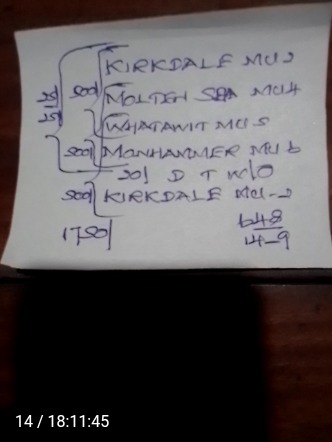 KIRKDALE MU2
500 MOLTEN SEA MU4
WHATAWIT MU5
500 MONHAMMER MU6
20/ D T W/O
500 KIRKDALE MU-2
1750/
648
14-9
14 / 18:11:45